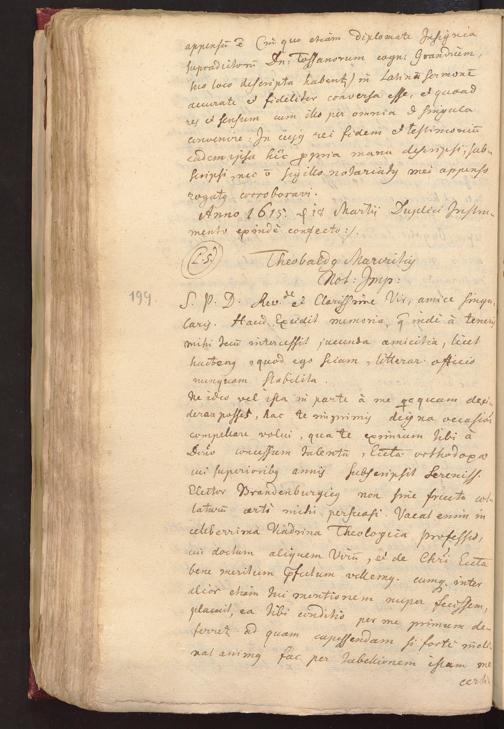 appensū ē (in quo etiam diplomate Insignia
supradictorū Dn: Tossanorum cogn: Grandium,
suo loco descripta habent) in Latinū sermonē
accurate et fideliter conversa esse, et quoad
res et sensum cum illo per omnia et singula
convenire. In cujus rei fidem et testimonium
eadem ipsa hic propria manu descripsi, sub-
scripsi, nec ō sigillo notariatus mei appenso
rogatq corroboravi.
Anno 1615. 18 Martii Duplici Instru-
mento confecto:/.
(L.S) Theobaldq
Not: Imp:
199
S. P. D. Rev.de et Clarissime Vir, amice singu
laris. Haud Excidit memoria, q inde à teneris
mihi tecū intercessit jucunda amicitia, licet
hactenq, quod ego sciam, litterar. officio
nunquam stabilita.
Ne ideo vel ista in parte à me quicquam desi-
derar posset, hac te inprimis digna occasione
compellare volui, qua te eximium tibi à
Deo concessum talentū, Eccta orthodoxa
cui superioribq annis subscripsit Sereniss.
Elector Brandenburgicq non sine fructu col-
laturū certo mihi persuasi. Vacat enim in
celeberrima Viadrina Theologica professio,
cui doctum aliquem Virū, et de Chri Eccta
bene meritum pfectum vellemq. cumq inter
alior etiam tui mentionem nuper fecissem,
placuit, ea tibi conditio per me primum de-
ferret. ad quam capessendam si forte incli-
nat animq fac per tabellionem istum me
certio